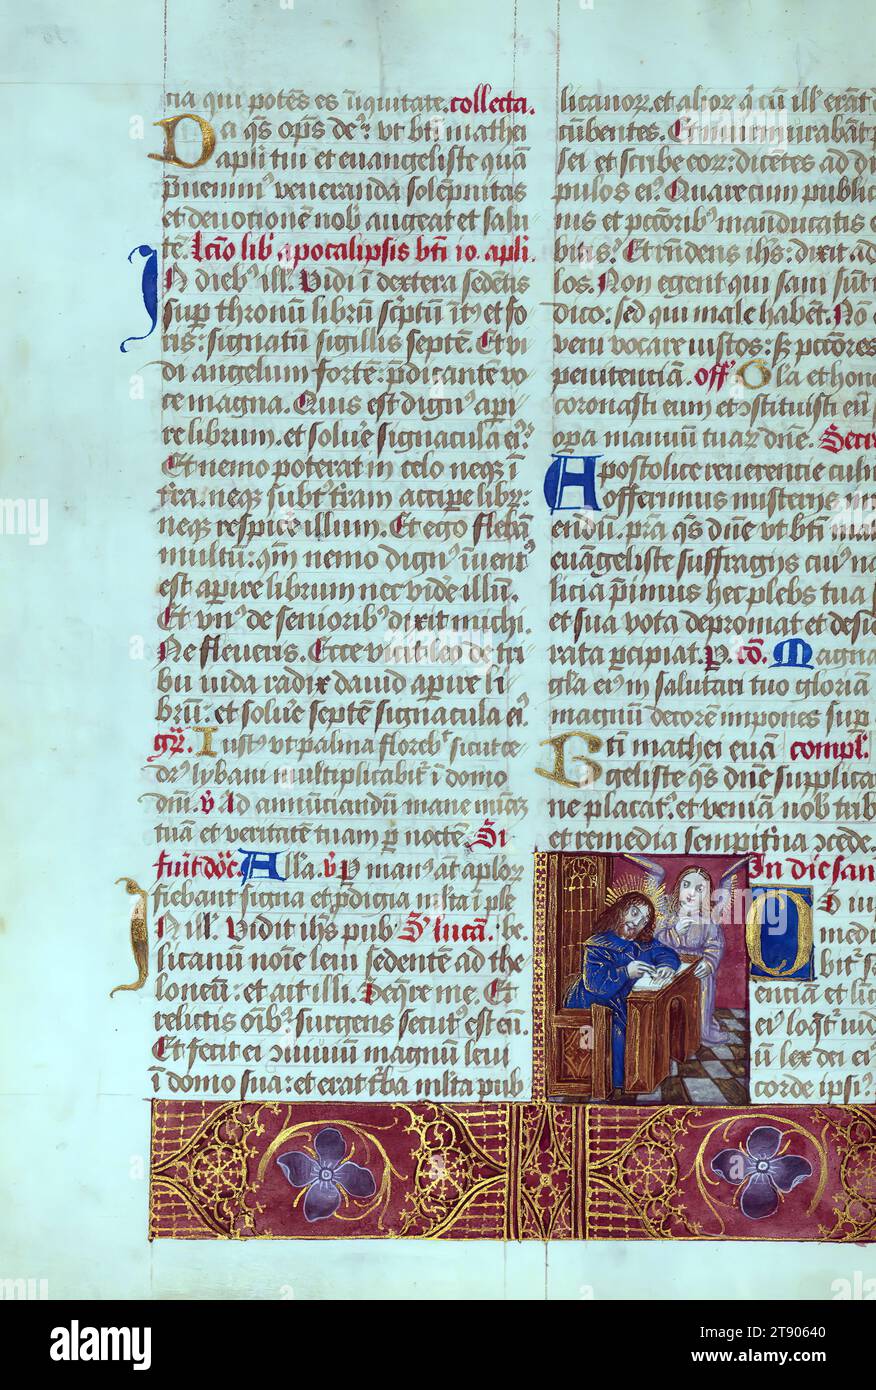 cia qui potẽs es ĩ iniquitate. collecta.
Da q̃s op̃s deꝰ: vt bt̃i mathei
apl̃i tui et euangeliste quã
p̃uenimꝰ veneranda solẽpnitas
et deuotionẽ nob̾ augeat et salu
tẽ. lcĩo lib̾ apocalipsis bt̃i io. apl̃i.
IN diebꝰ ill̾. Vidi ĩ dextera sedẽtis
sup̾ thronũ librũ sc̾ptũ ĩtꝰ et fo
ris: signatũ sigillis septẽ. Et vi
di angelum fortẽ: p̾dicantẽ vo
ce magna. Quis est dignꝰ ap̾i
re librum. et solue̾ signacula eiꝰ.
Et nemo poterat in celo neqꝫ ĩ
t̾ra. neqꝫ subtꝰ t̾ram aperire libr̃:
neqꝫ respice̾ illum. Et ego flebã
multũ: qm̃ nemo dignꝰ ĩuentꝰ
est ap̾ire librum nec vide̾ illũ.
Et vnꝰ de senioribꝰ dixit michi.
Ne fleueris. Ecce vicit leo de tri
bu iuda radix dauid ap̾ire li
brũ: et solue̾ septẽ signacula eiꝰ.
gr̾. Iustꝰ vt palma florebit̾ sicut ce
drꝰ lybani multiplicabit̾ ĩ domo
dñi. v̾ Ad annũciandũ mane mĩam
tuam et veritatẽ tuam p̾ noctẽ. Si
fu̾it dõic̾. All̾a. v̾ P̾ manꝰ at apl̃oꝝ
fiebant signa et p̾digia ml̃ta ĩ ple
IN ill̾. Vidit ih̃s pub S̾ lucã. be.
licanũ noĩe leui sedentẽ ad the
loneũ: et ait illi. Seq̾re me. Et
relictis oĩbꝰ surgens secutꝰ est eũ.
Et fecit ei ↄuiuiũ magnũ leui
ĩ domo sua: et erat t̾ba ml̃ta pub
licanoꝝ. et alioꝝ q̾ cũ ill̾ erãt
cũbentes. Et murmurabãt
sei et scribe eoꝝ: dicẽtes ad di
pulos eiꝰ. Quare cum public
nis et pcc̃oribꝰ manducatis e
bitis? Et r̃ndens ih̃s: dixit ad
los. Non egent qui sani sũt
dico: sed qui male habẽt. Nõ
veni vocare iustos: sꝫ pcc̃ores
penitenciã. off̾ Gl̃a et hono
coronasti eum et ↄstituisti eũ
op̾a manuũ tuaꝝ dñe. Secre
Apostolice reuerencie culm
offerimus misterijs
endũ. p̾ra q̃s dñe vt bt̃i mat
euãgeliste suffragijs cuiꝰ na
licia p̾imus hec plebs tua s
et sua vota depromat et desi
rata p̾cipiat. P̾ cõ. Magna
gl̃a eiꝰ in salutari tuo gloriam
magnũ decorẽ impones sup̾
Bt̃i mathei euã compl̾.
geliste q̃s dñe supplica
ne placatꝰ. et veniã nob̾ trib
et remedia sempit̾na ↄcede.
In die san
OS iu
medi
bit̾ s
enciã et li
eiꝰ loq̾t̾ iud
ũ lex dei eiꝰ
corde ipsiꝰ.
alamy
Image ID: 2T90640
www.alamy.com